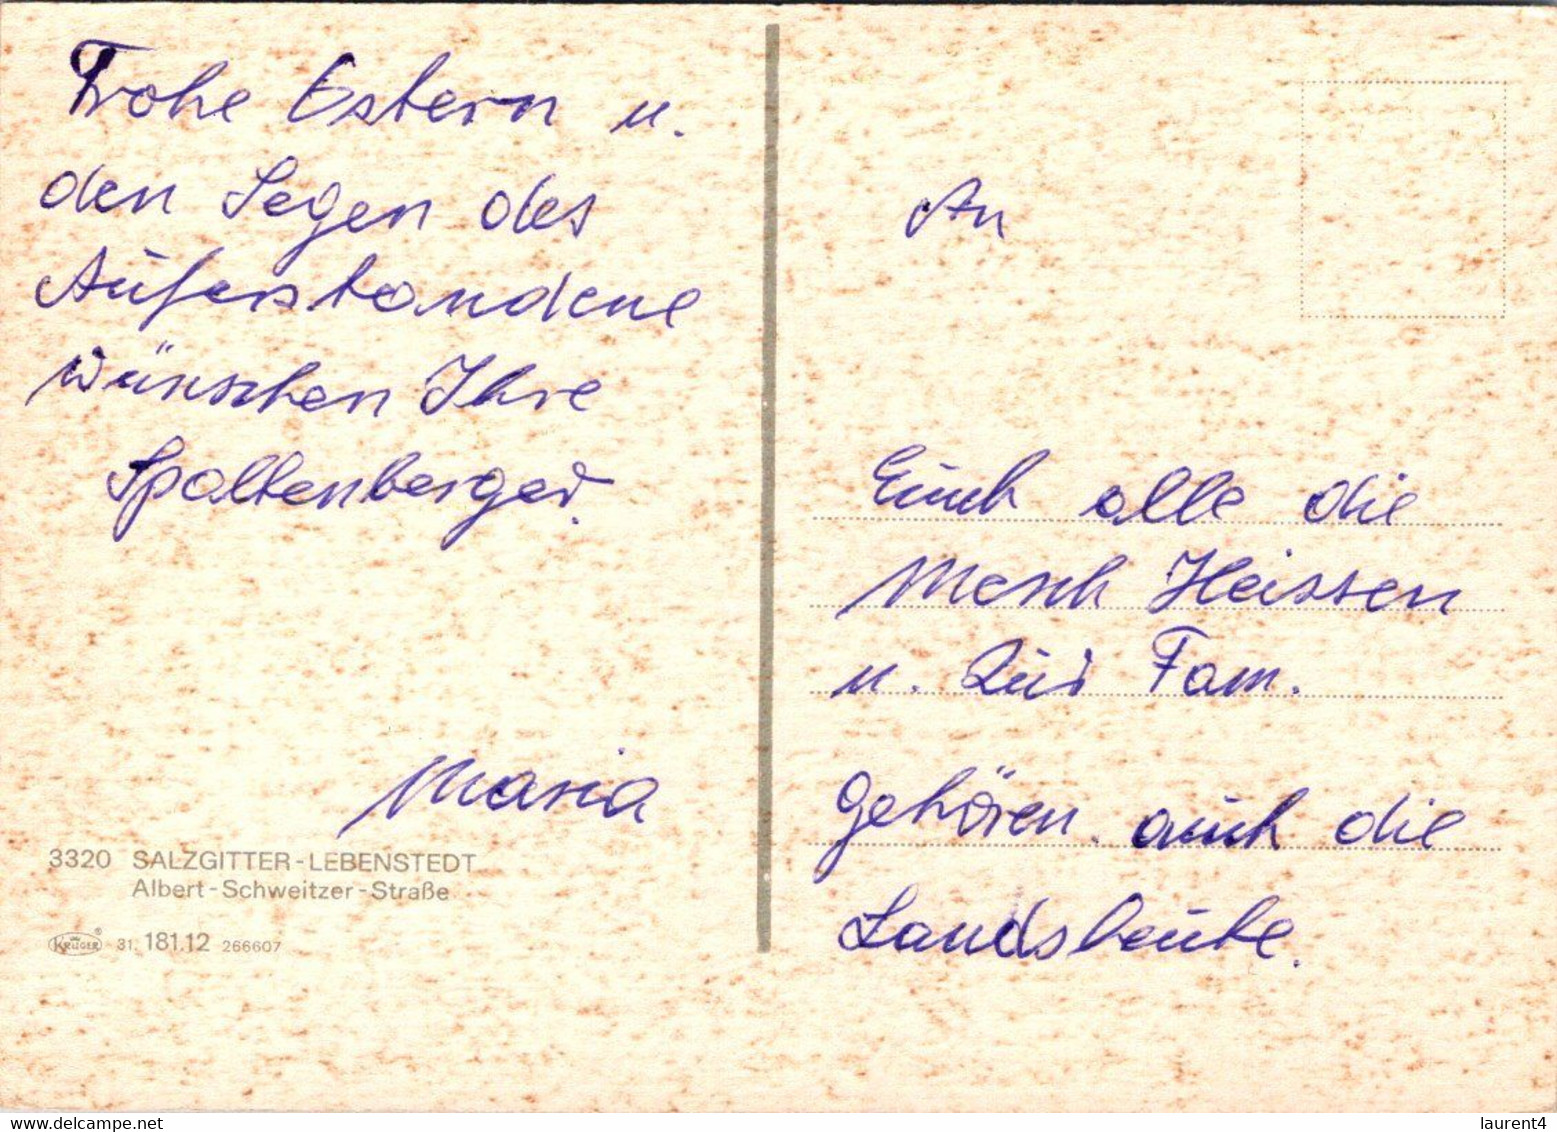 Frohe Ostern u.
den Segen des
Auferstandene
wünschen Ihre
Spaltenberger.
Maria
3320 SALZGITTER-LEBENSTEDT
Albert-Schweitzer-Straße
KRÜGER® 31. 181.12 266607
An
Euch alle die
Mesch Heissen
u. zur Fam.
gehören auch die
Landsleute.
www.delcampe.net
laurent4